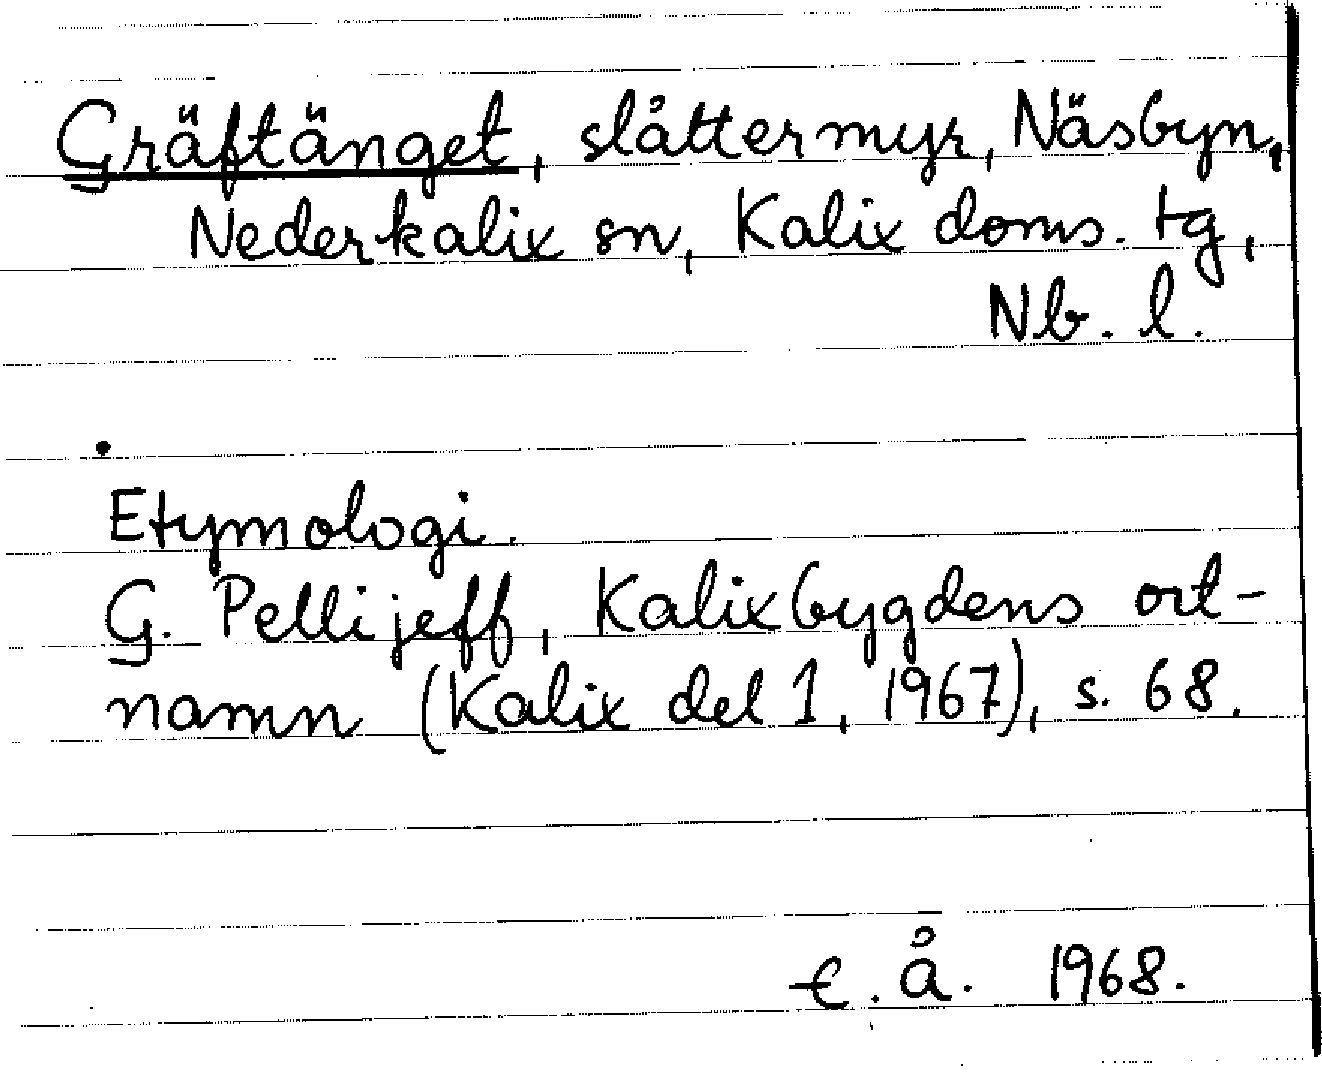 Gräftänget, slåttermyr, Näsbyn,
Nederkalix sn, Kalix doms. tg,
Nb. l.
Etymologi.
G. Pellijeff, Kalixbygdens ort-
namn (Kalix del 1, 1967), s. 68.
E. Å. 1968.